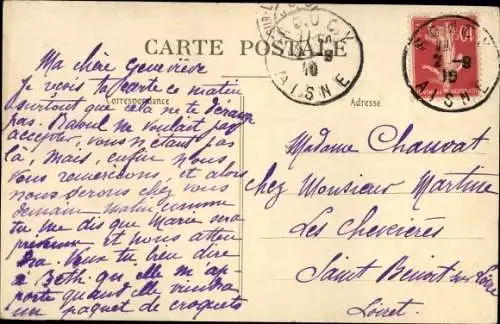 CARTE POSTALE
Correspondance
Adresse
Ma chère Geneviève
Je reçois ta carte ce matin
surtout que cela ne te dérange
pas. Raoul ne voulait pas
accepter, vous n'etant pas
là, mais, enfin nous
vous remercions, et alors
nous serons chez vous
demain matin comme
tu me dis que Marie sera
prévenue et nous atten
dra. Veux tu bien dire
à Beth. qu'elle m'ap-
porte quand elle viendra
un paquet de croquets
Madame Chauvat
chez Monsieur Martine
Les
Saint Benoit sur Loire
Loiret
AISNE
10
2 -9
10
AISNE